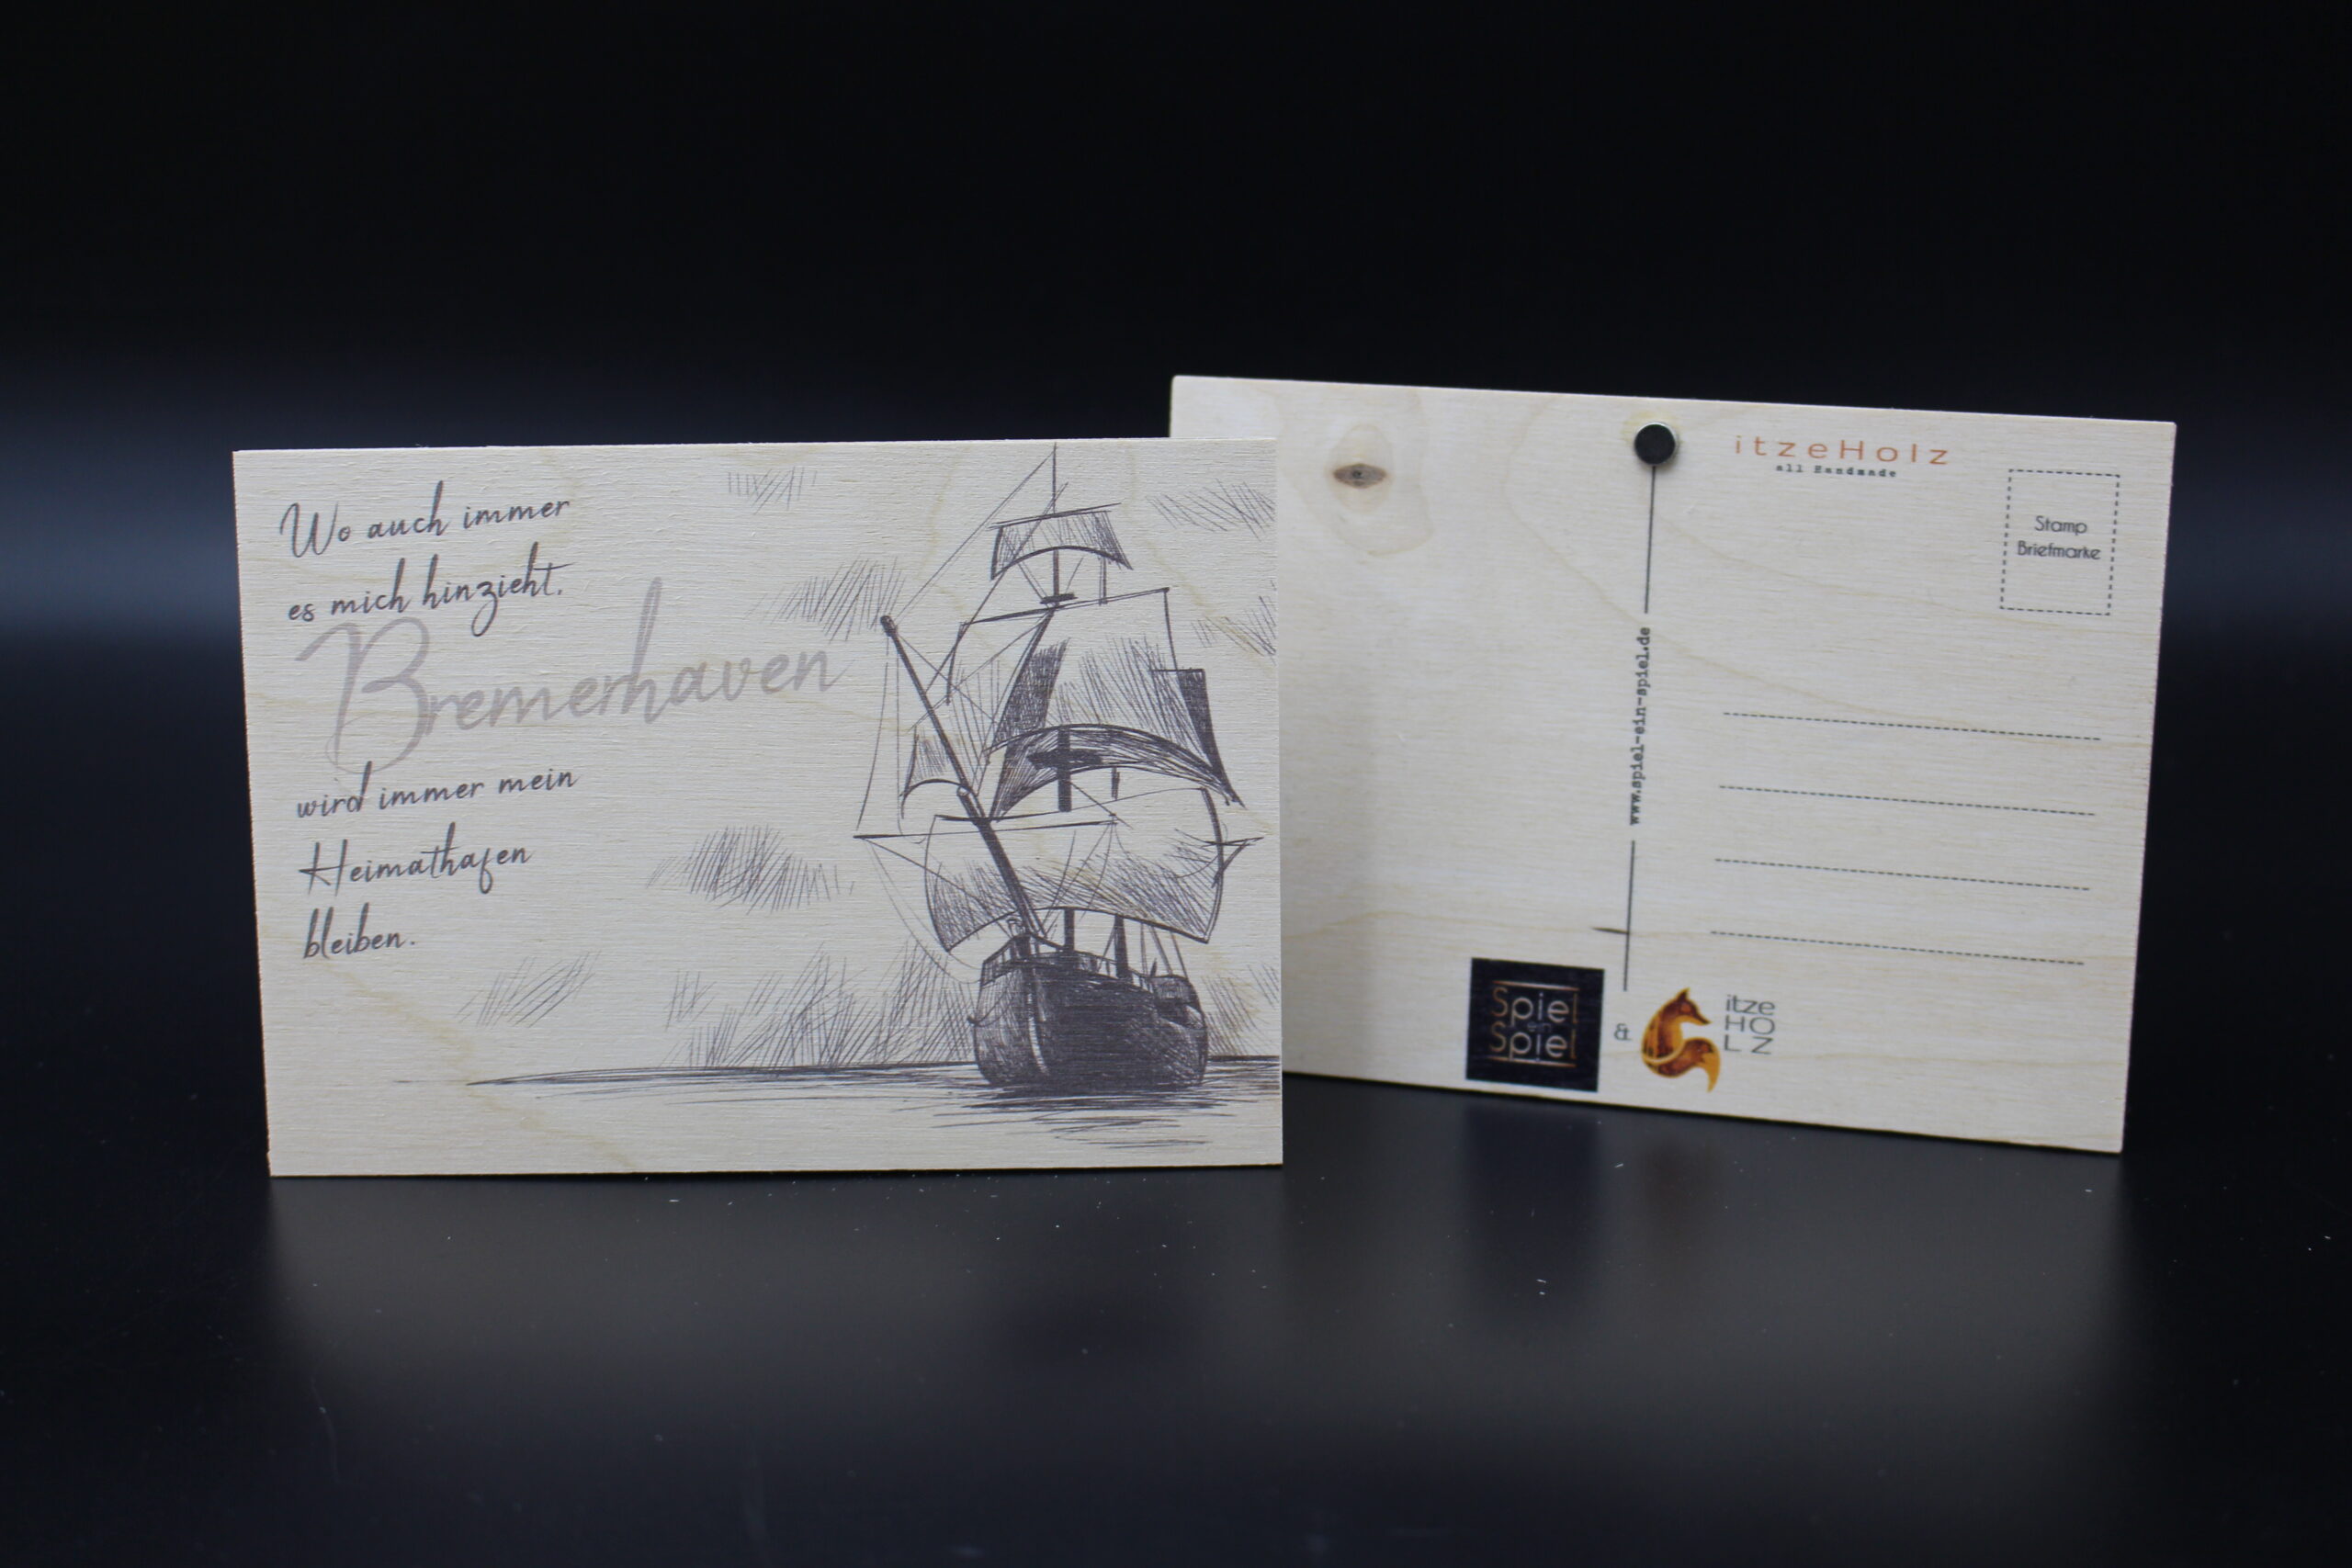 Wo auch immer
es mich hinzieht,
Bremerhaven
wird immer mein
Heimathafen
bleiben.
itzeHolz
all Handmade
Stamp
Briefmarke
www.spiel-ein-spiel.de
Spiel
ein
Spiel
&
itze
HO
LZ